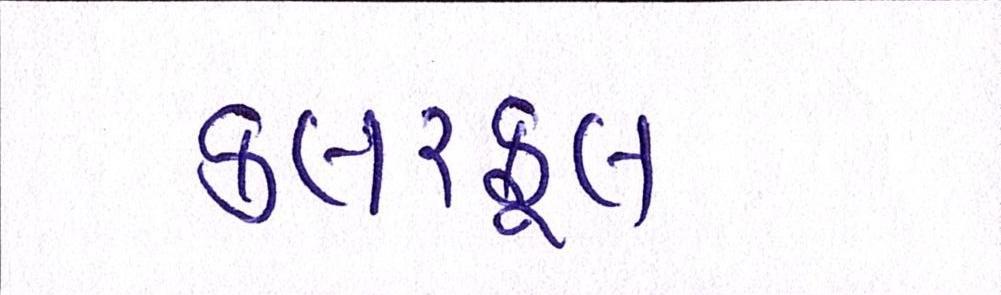 કલરફૂલ